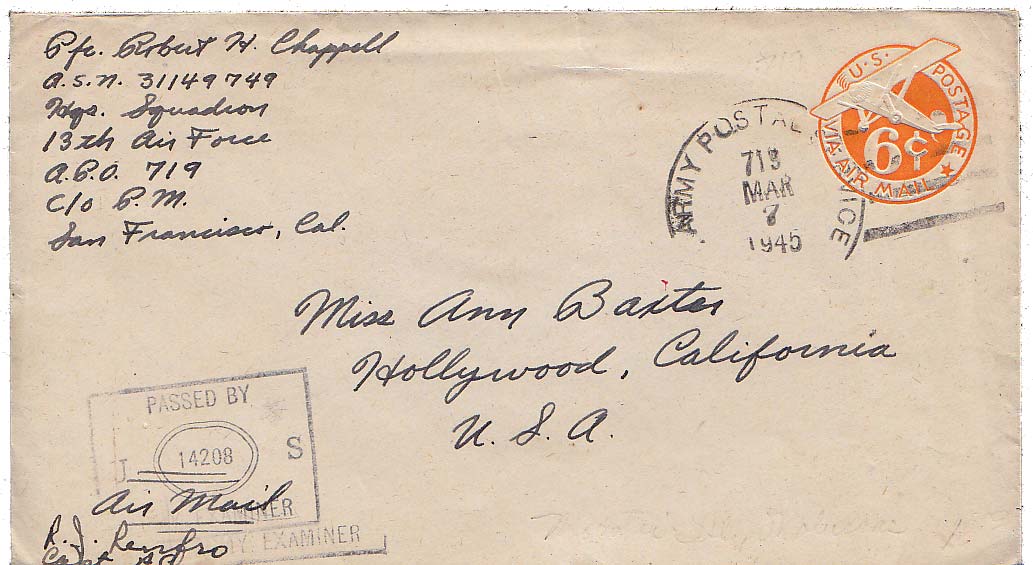 Pfc. Robert H. Chappell
A.S.N. 31149749
Hqs. Squadron
13th Air Force
A.P.O. 719
C/o P.M.
San Francisco, Cal.
U.S. POSTAGE
6¢
VIA AIR MAIL
ARMY POSTAL
719
MAR
7
1945
Miss Ann Baxter
Hollywood, California
U. S. A.
PASSED BY
U 14208 S
Air Mail
EXAMINER
ARMY EXAMINER
R. J. Renfro
Capt AC